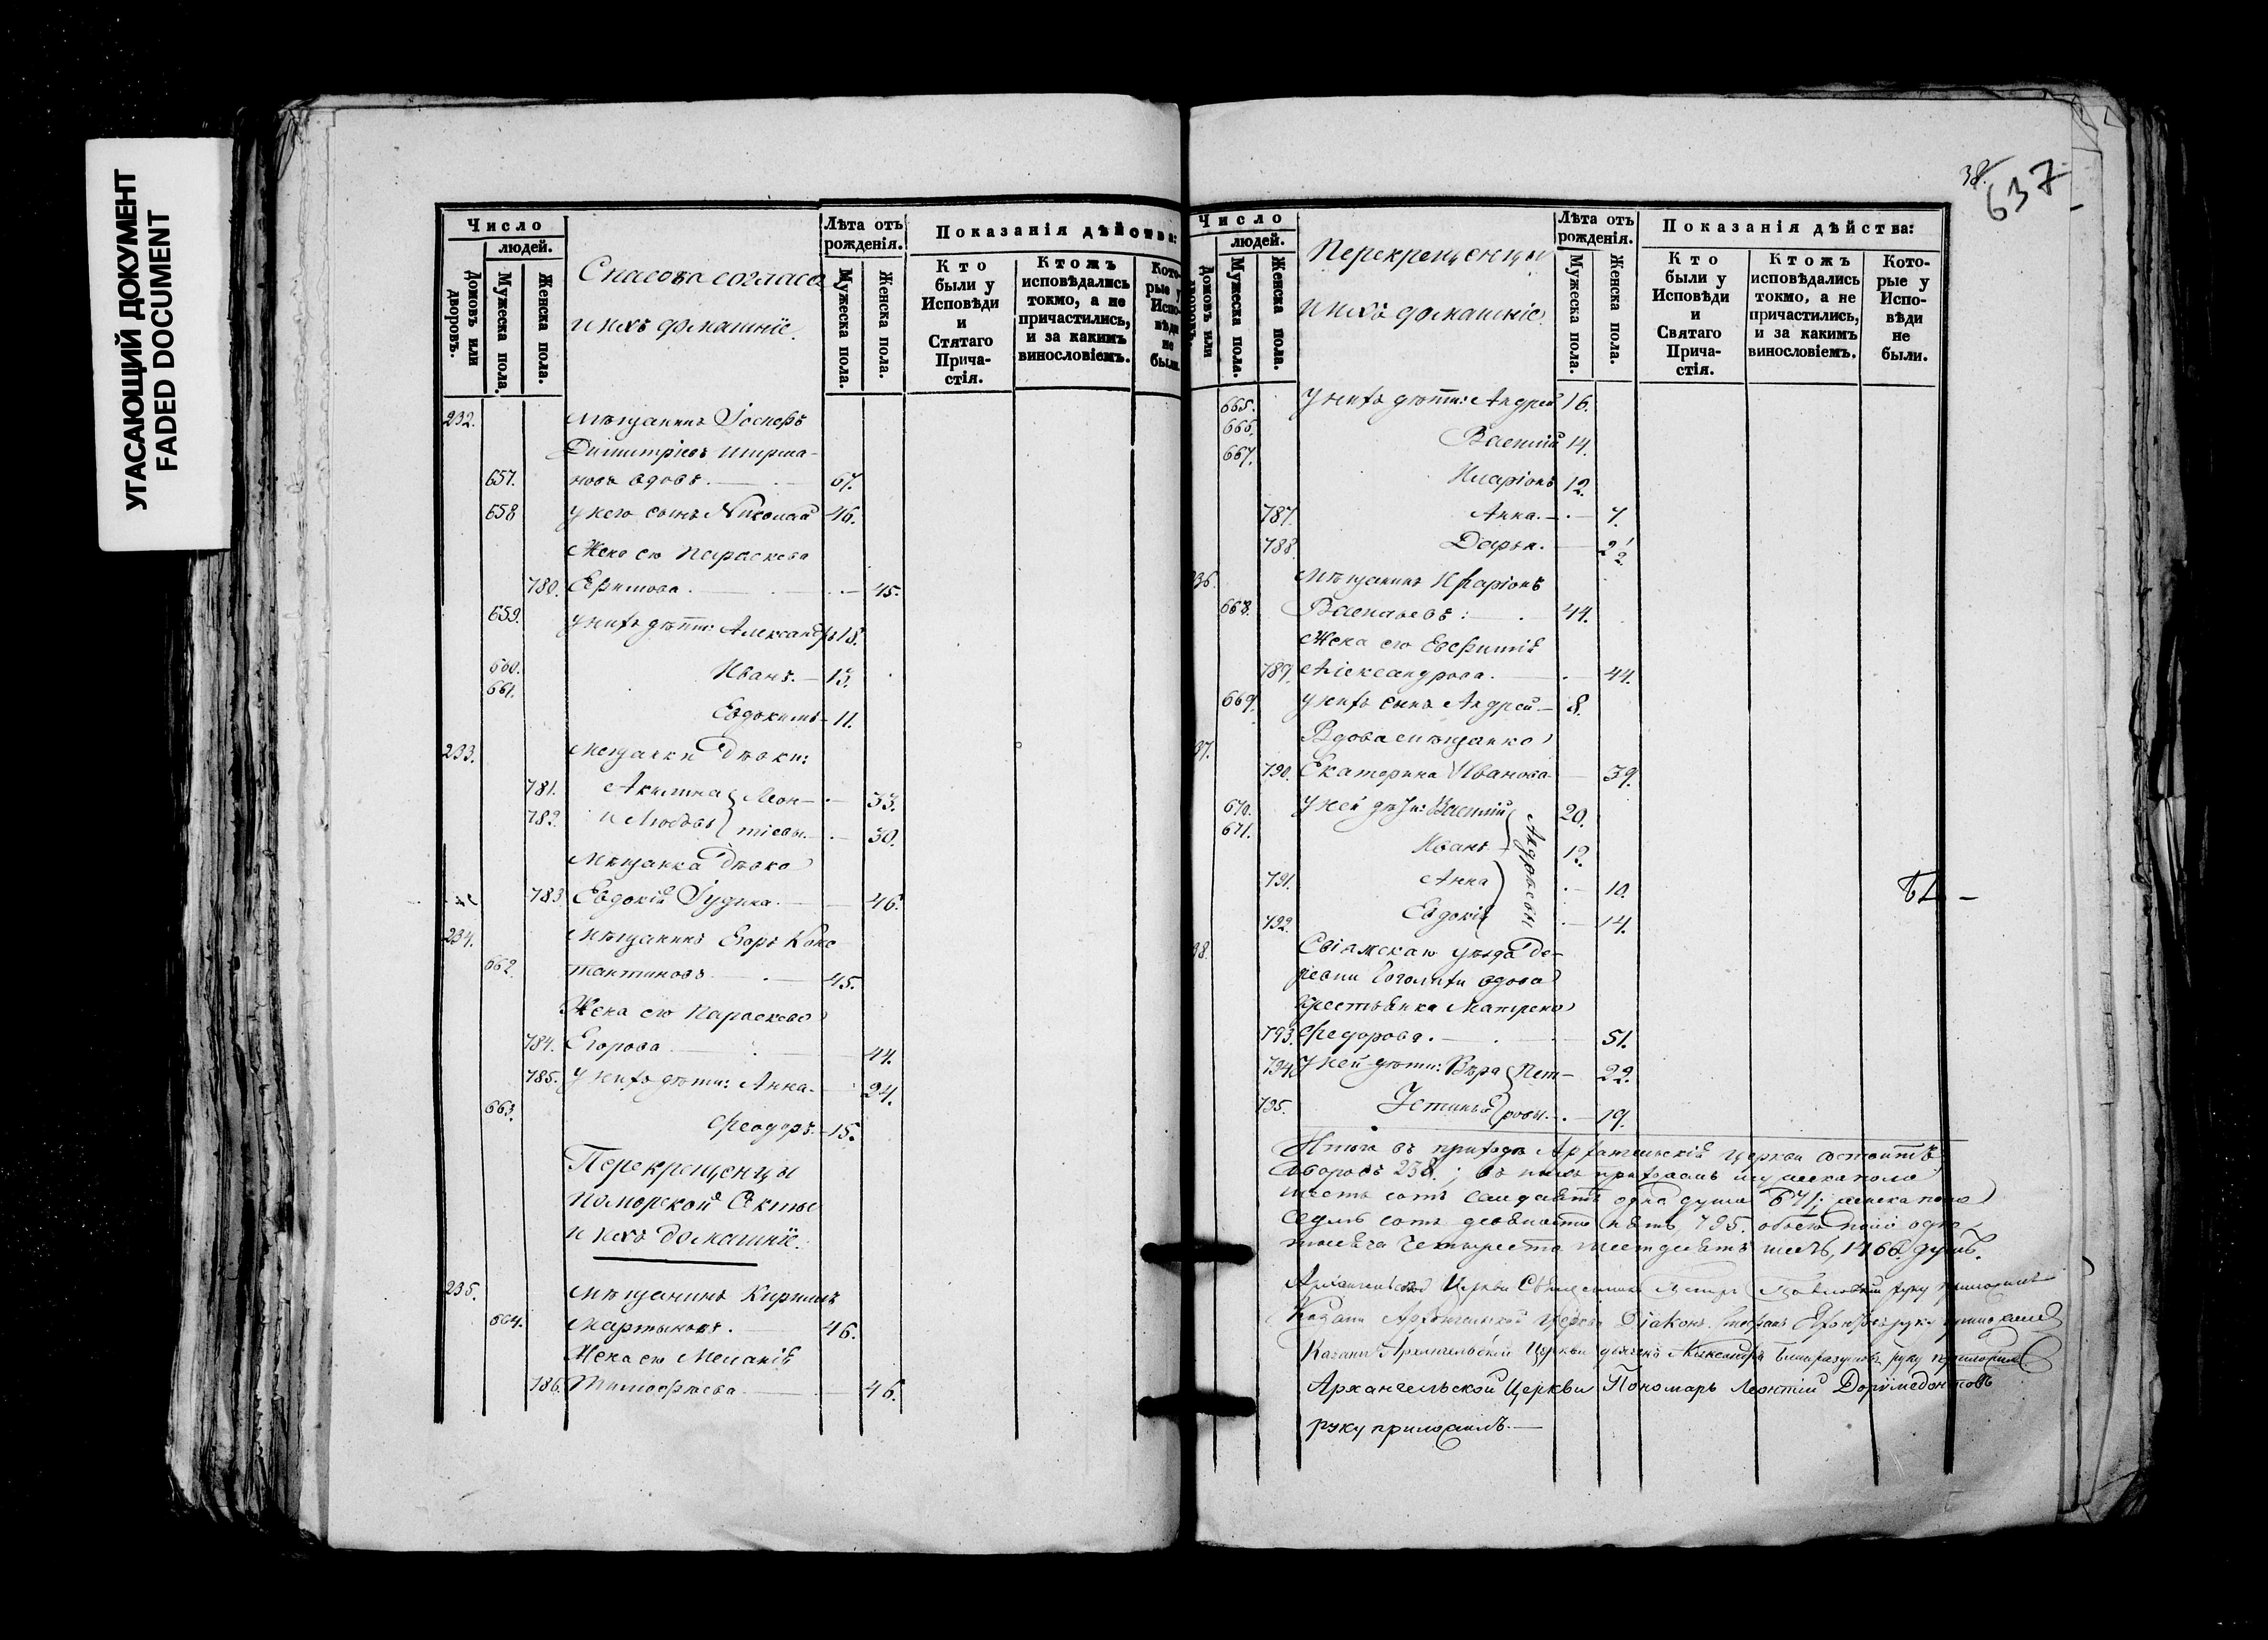 УГАСАЮЩИЙ ДОКУМЕНТ
FADED DOCUMENT
Число
людей.
Домовъ или дворовъ.
Мужеска пола.
Женска пола.
Спасова согласа
и ихъ домашніе.
Лѣта отъ рожденія.
Мужеска пола.
Женска пола.
Показанія дѣйства:
Кто были у Исповѣди и Стятаго Прича-стія.
Ктожъ исповѣдались токмо, а не причастились, и за какимъ винословіемъ.
Кото-рые у Испо-вѣди не были.
232. Мѣщанинъ Іосифъ
Димитріевъ
657. новъ вдовъ. 67.
658 у него сынъ Николай 46.
Жена его Параскева
780. Ефимова. 45.
659. у нихъ дѣти: Александръ 18.
660. Иванъ. 15.
661. Евдокимъ 11.
233. Мещанки Дѣвки:
781. Акилина Леон- 33.
782. и Любовь тіевы. 30.
Мѣщанка Дѣвка
783. Евдокія Іудина. 46.
234. Мѣщанинъ Егоръ Конс
662. тантиновъ 45.
Жена его Параскева
784. Егорова 44.
785. У нихъ дѣти: Анна. 24.
663. Феодоръ. 15.
Перекрещенцы
Поморской Секты
и ихъ домашніе.
235. Мѣщанинъ Кирилъ
664. Мартыновъ. 46.
Жена его Меланія
786. Тимофѣева. 46.
38.
637
Число
людей.
Домовъ или дворовъ.
Мужеска пола.
Женска пола.
Перекрещенцы
и ихъ домашніе.
Лѣта отъ рожденія.
Мужеска пола.
Женска пола.
Показанія дѣйства:
Кто были у Исповѣди и Святаго Прича-стія.
Ктожъ исповѣдались токмо, а не причастились, и за какимъ винословіемъ.
Кото-рые у Испо-вѣди не были.
665. У нихъ дѣти: Андрей 16.
666. Василій 14.
667. Иларіонъ 12.
787. Анна. 7.
788. Дарья. 2 1/2
36. Мѣщанинъ Иларіонъ
668. Васильевъ: 44.
Жена его Евфимія
789. Александрова. 44.
669. у нихъ сынъ Андрей 8.
37. Вдова мѣщанка
790. Екатерина Иванова 39.
670. У ней дѣти: Василій 20.
671. Иванъ 12.
Андреевы
791. Анна 10.
792. Евдокія 14.
38. Свіяжскаго уѣзда Де-
ревни вдова
крестьянка Матрена
793. Федорова. 51.
794. У ней дѣти: Вѣра Пет- 22.
795. Устинья ровы. 19.
Итого въ приходѣ Архангельской церкви состоитъ
дворовъ 238.; въ нихъ прихожанъ мужеска пола
шесть сотъ семдесятъ одна душа 671; женска пола
седмь сотъ девяносто пять, 795. обоего пола одна
тысяча четыреста шестдесятъ шесть, 1466. душъ.
Архангельской Церкви Священникъ Петръ руку приложилъ
Казани Архангельской Церкви Діаконъ руку приложилъ
Казани Архангельской Церкви дьячекъ Александръ руку приложилъ
Архангельской Церкви Пономарь Леонтій Доримедонтовъ
руку приложилъ.